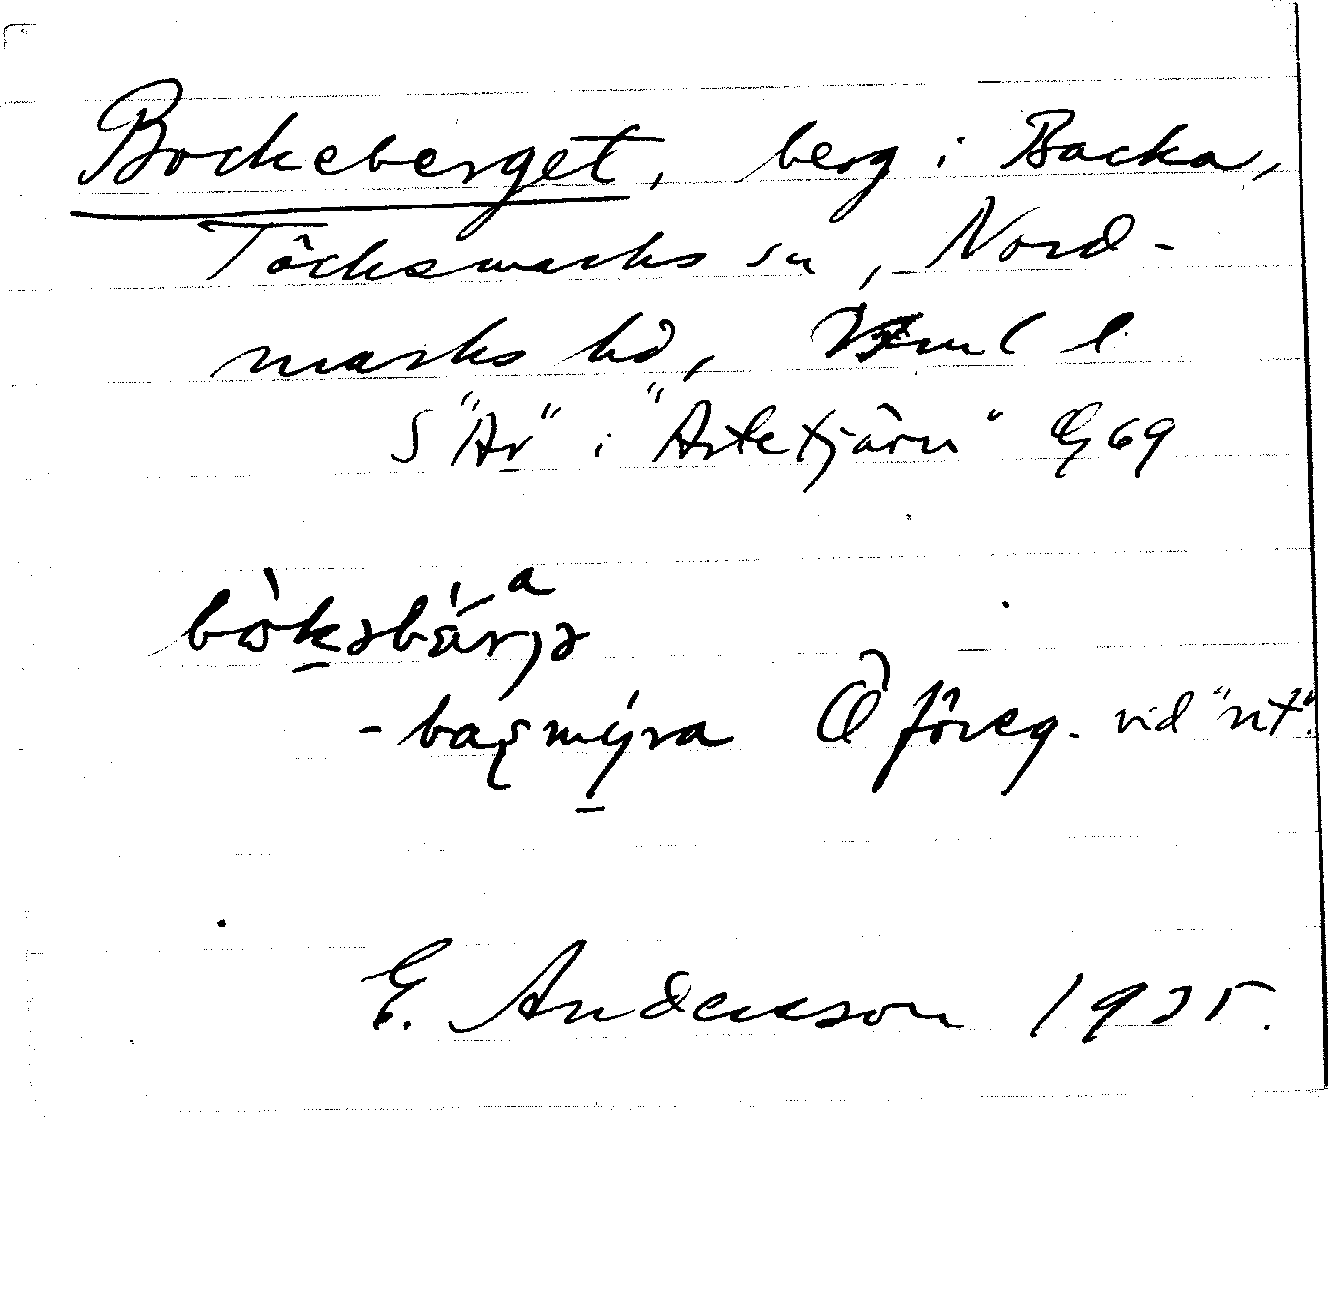 Bockeberget, berg i Backa,
Töcksmarks sn, Nord-
marks hd, Vrml l
S "Ar" i "Artetjärn" G 69
bòkəbärjə a
-bagmýra Ö föreg. vid "nt".
E. Andersson 1935.